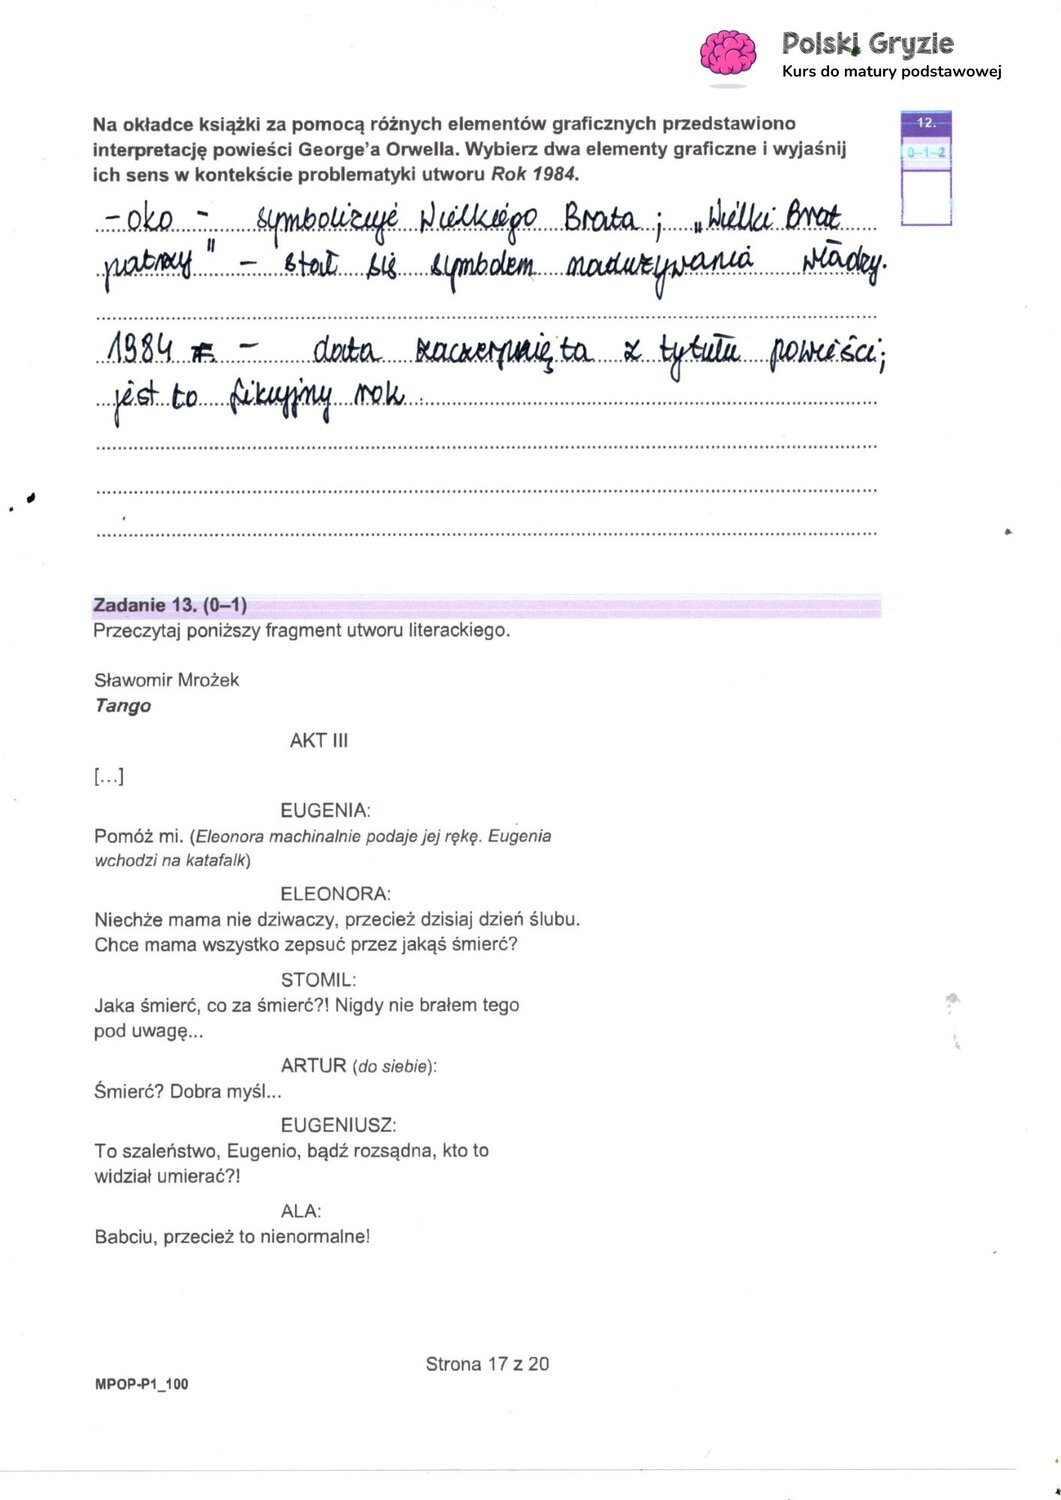 Polski Gryzie
Kurs do matury podstawowej
Na okładce książki za pomocą różnych elementów graficznych przedstawiono
interpretację powieści George'a Orwella. Wybierz dwa elementy graficzne i wyjaśnij
ich sens w kontekście problematyki utworu Rok 1984.
12.
0–1–2
- oko - symbolizuje Wielkiego Brata; „Wielki Brat
patrzy" - stał się symbolem nadużywania władzy.
1984 r. - data zaczerpnięta z tytułu powieści;
jest to fikcyjny rok.
Zadanie 13. (0–1)
Przeczytaj poniższy fragment utworu literackiego.
Sławomir Mrożek
Tango
AKT III
[...]
EUGENIA:
Pomóż mi. (Eleonora machinalnie podaje jej rękę. Eugenia
wchodzi na katafalk)
ELEONORA:
Niechże mama nie dziwaczy, przecież dzisiaj dzień ślubu.
Chce mama wszystko zepsuć przez jakąś śmierć?
STOMIL:
Jaka śmierć, co za śmierć?! Nigdy nie brałem tego
pod uwagę...
ARTUR (do siebie):
Śmierć? Dobra myśl...
EUGENIUSZ:
To szaleństwo, Eugenio, bądź rozsądna, kto to
widział umierać?!
ALA:
Babciu, przecież to nienormalne!
Strona 17 z 20
MPOP-P1_100